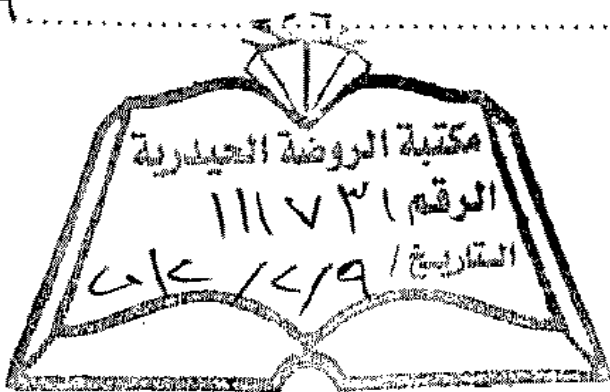 مكتبة الروضة الحيدرية
الرقم ١١١٧٣١
التاريخ / ٩/٢/